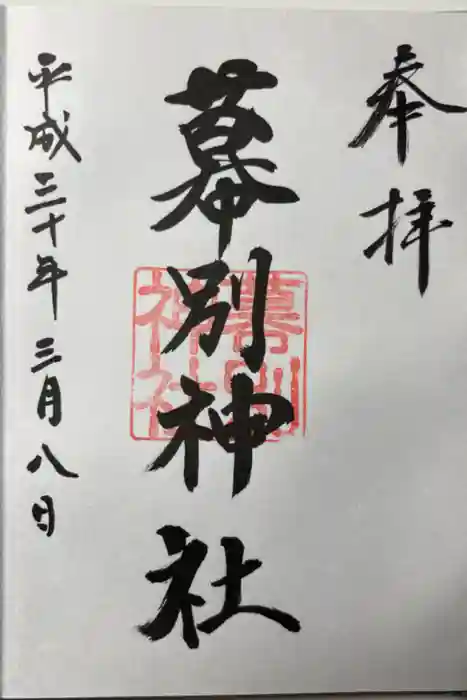 奉拝
幕別神社
幕別
神社
平成三十年三月八日